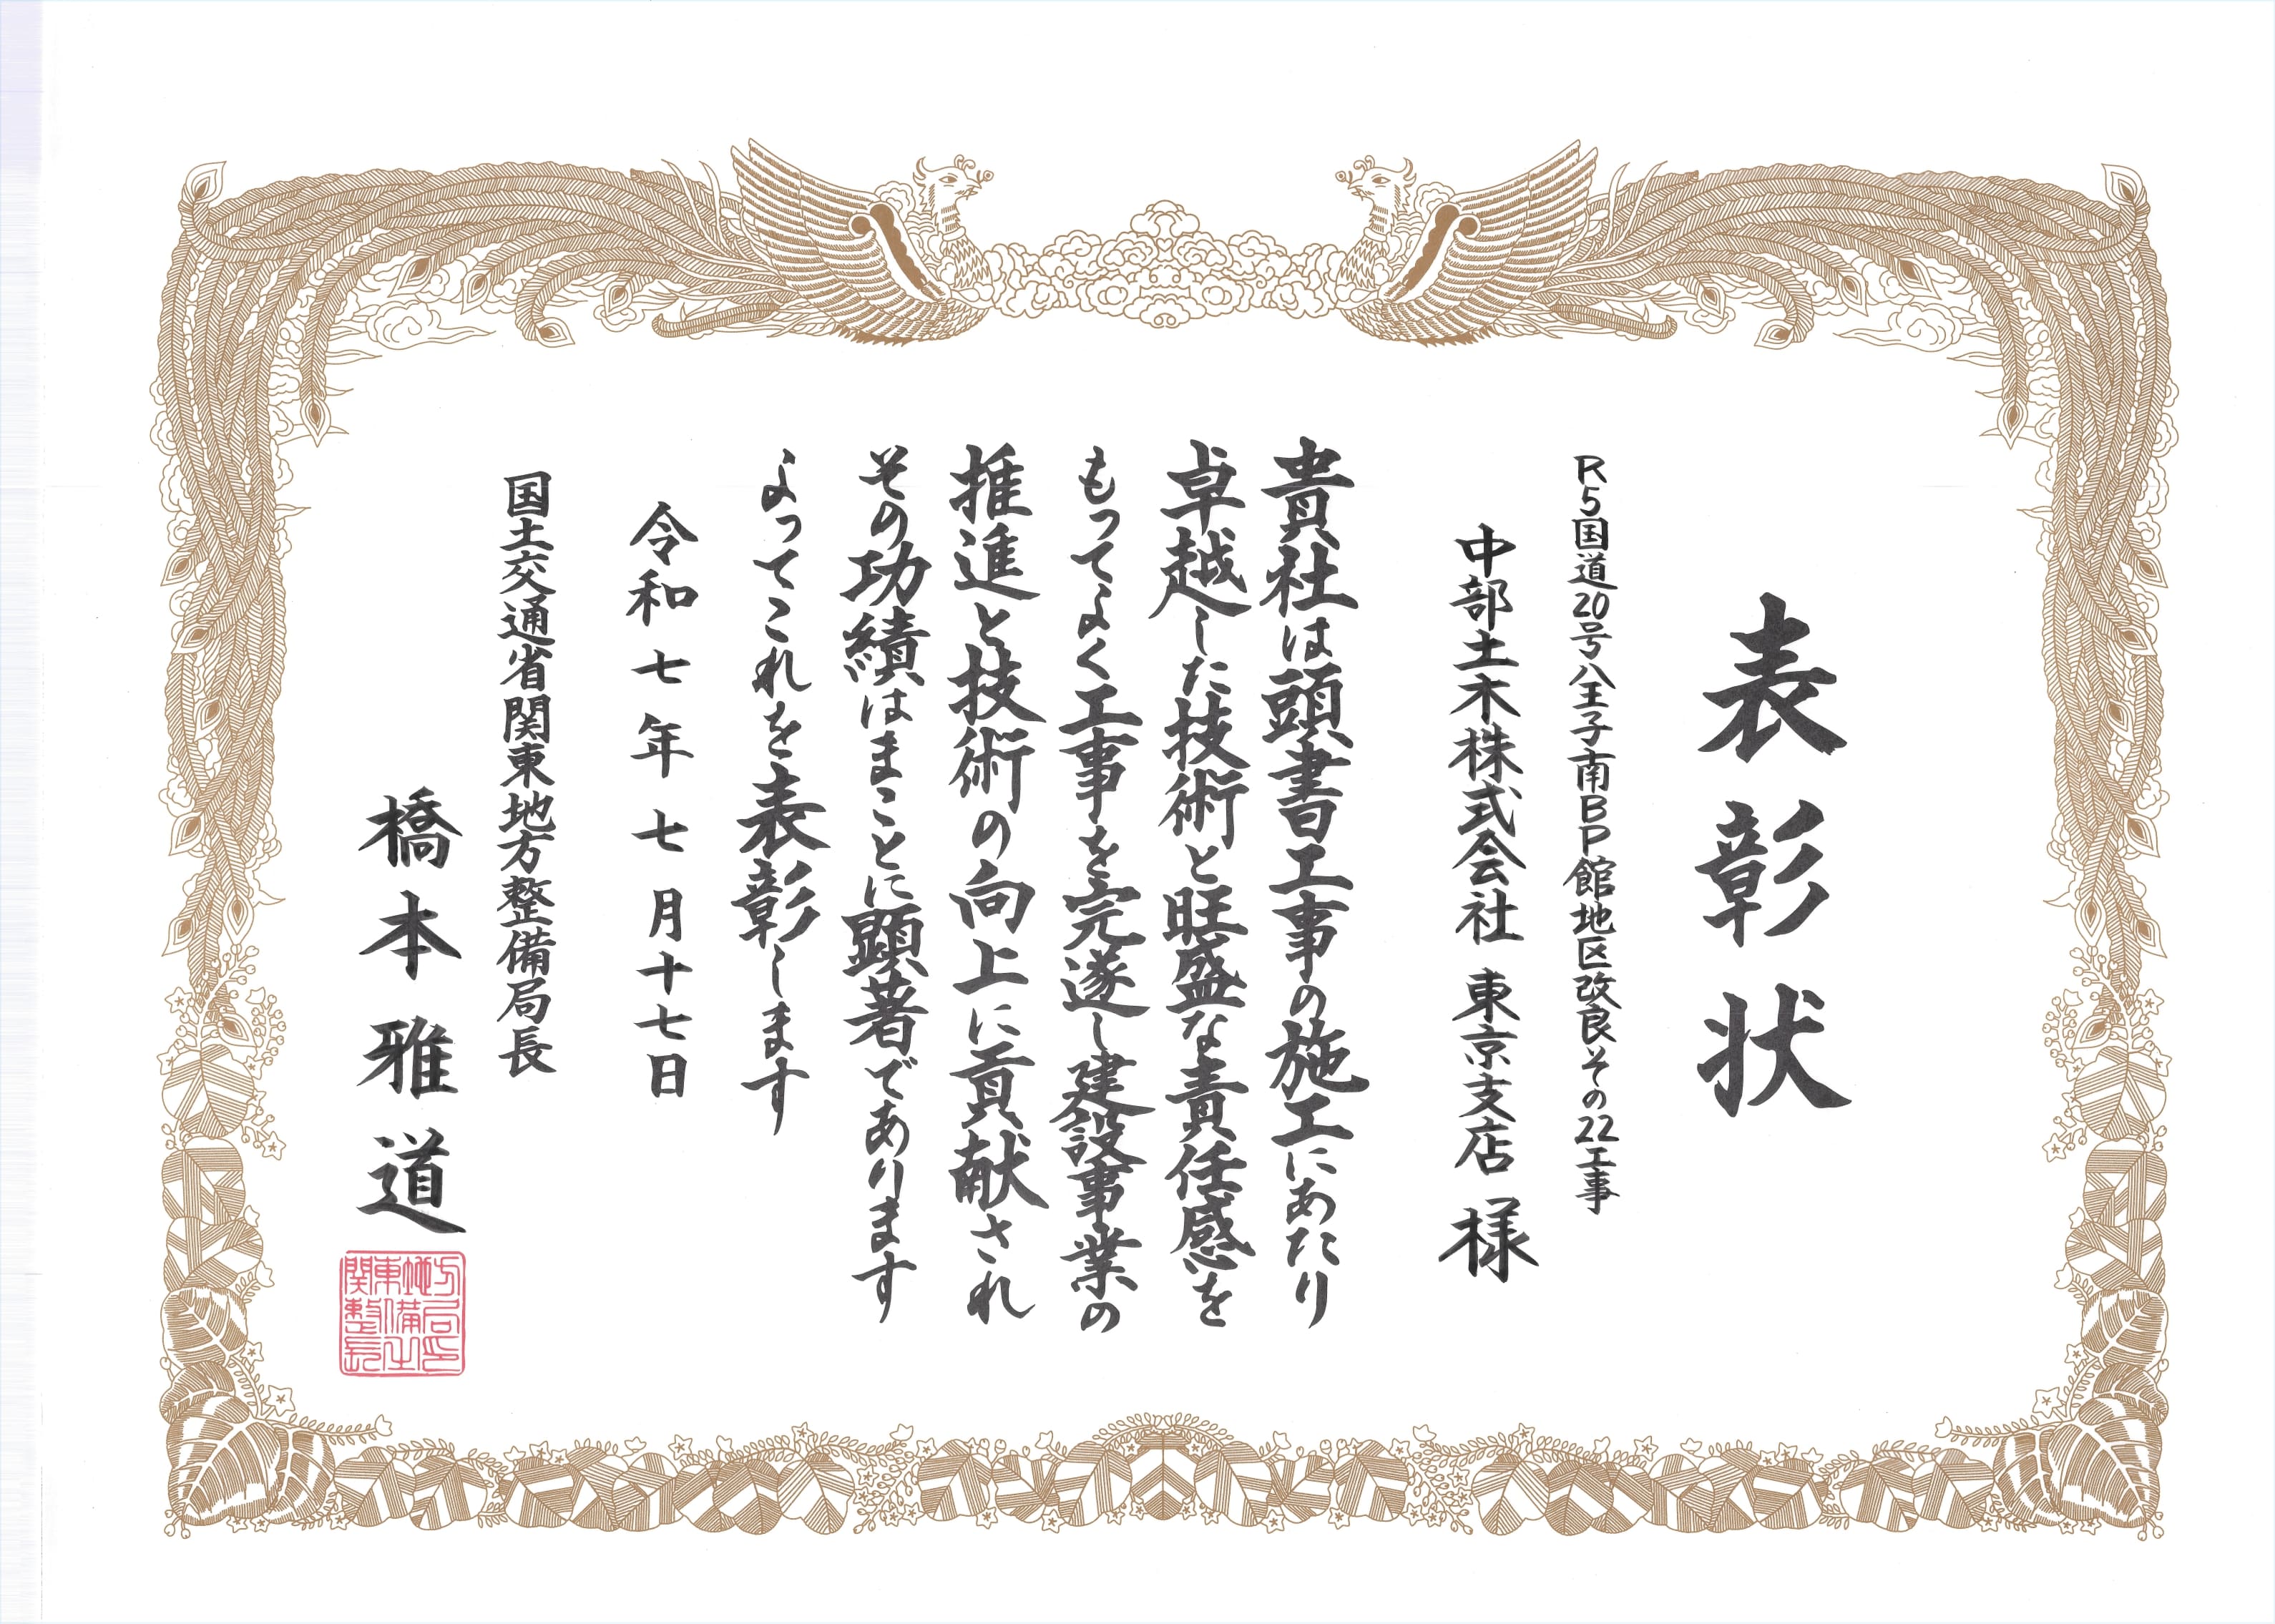 表彰状
R5国道20号八王子南BP館地区改良その22工事
中部土木株式会社 東京支店 様
貴社は頭書工事の施工にあたり
卓越した技術と旺盛な責任感を
もってよく工事を完遂し建設事業の
推進と技術の向上に貢献され
その功績はまことに顕著であります
よってこれを表彰します
令和七年七月十七日
国土交通省関東地方整備局長
橋本雅道